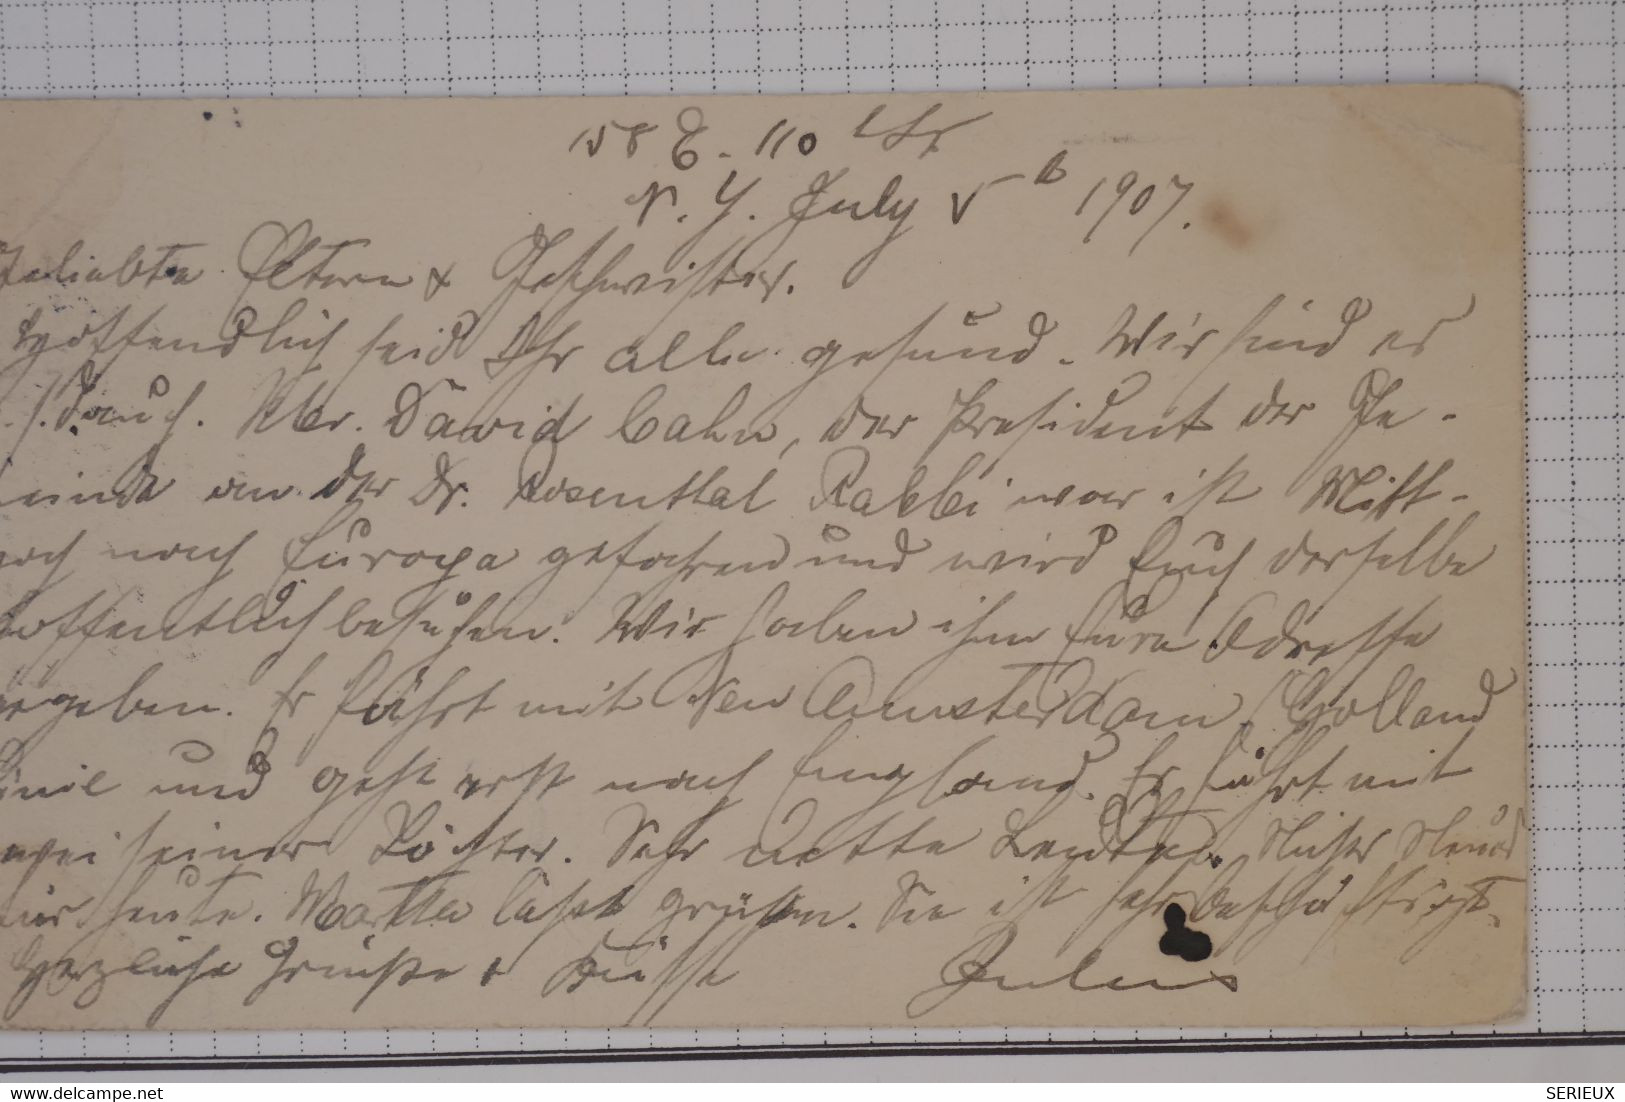 158 E. 110 Str
N. Y. July 5th 1907.
Geliebte Eltern & Geschwister.
Hoffendlich seid Ihr alle gesund. Wir sind es
G. s. D. auch. Mr. David Cahn, der President der Ge-
meinde an der Dr. Rosenthal Rabbi war ist Mitt-
woch nach Europa gefahren und wird Euch derselbe
hoffentlich besuchen. Wir haben ihm Eure Adresse
gegeben. Er fährt mit New Amsterdam (Holland
Linie und geht erst nach England. Er fährt mit
zwei seiner Töchter. Sehr nette Leute. Nichts Neues
für heute. Martha läßt grüßen. Sie ist sehr beschäftigt.
Herzliche Grüße & Küsse Julius
SERIEUX
delcampe.net